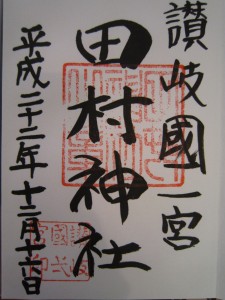 讃岐國一宮
田村神社
平成二十二年十二月十六日